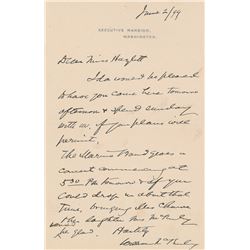 June 2/99
EXECUTIVE MANSION,
WASHINGTON.
Dear Miss Hazlett
I do would be pleased
to have you come here tomorrow
afternoon & spend Sunday
with us, if your plans will
permit.
The Marine Band gives a
concert commencing at
5 30 PM tomorrow & if you
could drop in about that
time, bringing Miss Chance
Mrs McKinley
be glad Hastily
William McKinley